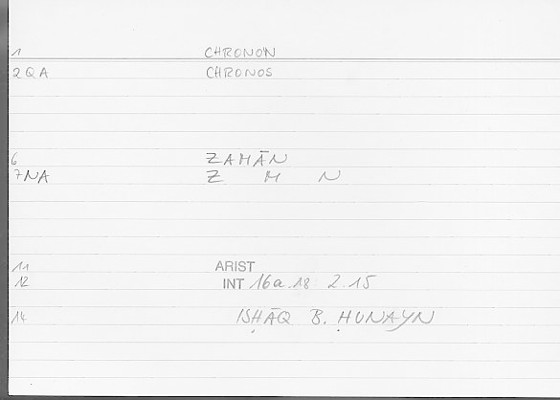 1 CHRONON
2 QA CHRONOS
6 ZAMĀN
7NA Z M N
11 ARIST
12 INT 16a.18 2.15
14 ISḤĀQ B. ḤUNAYN